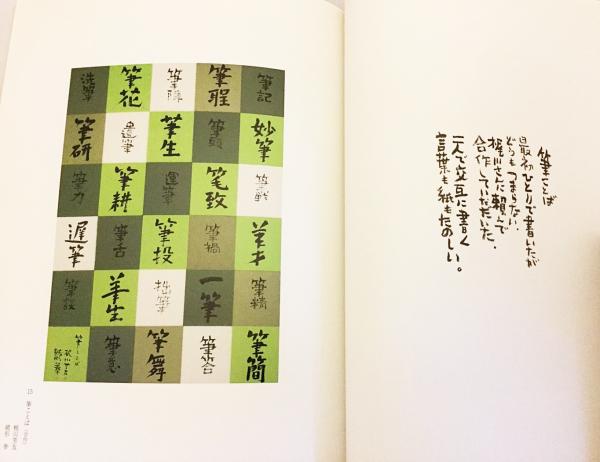 筆ことば
最初ひとりで書いたが
どうもつまらない。
梶川さんに頼んで
合作していただいた。
二人で交互に書く
言葉も紙もたのしい。
筆記
筆程
筆陣
筆花
洗筆
妙筆
筆生
遺筆
筆研
筆戦
筆致
運筆
筆耕
筆力
筆才
筆禍
筆投
筆舌
遅筆
筆精
一筆
拙筆
筆生
筆簡
筆答
筆舞
筆意
筆ことば
15 筆ことば（合作）
梶川芳友
緒形 拳